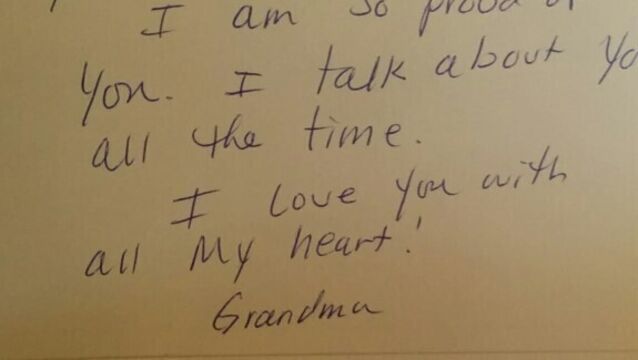 I am so prood of
You. I talk about Yo
all the time.
I Love You with
all My heart!
Grandma